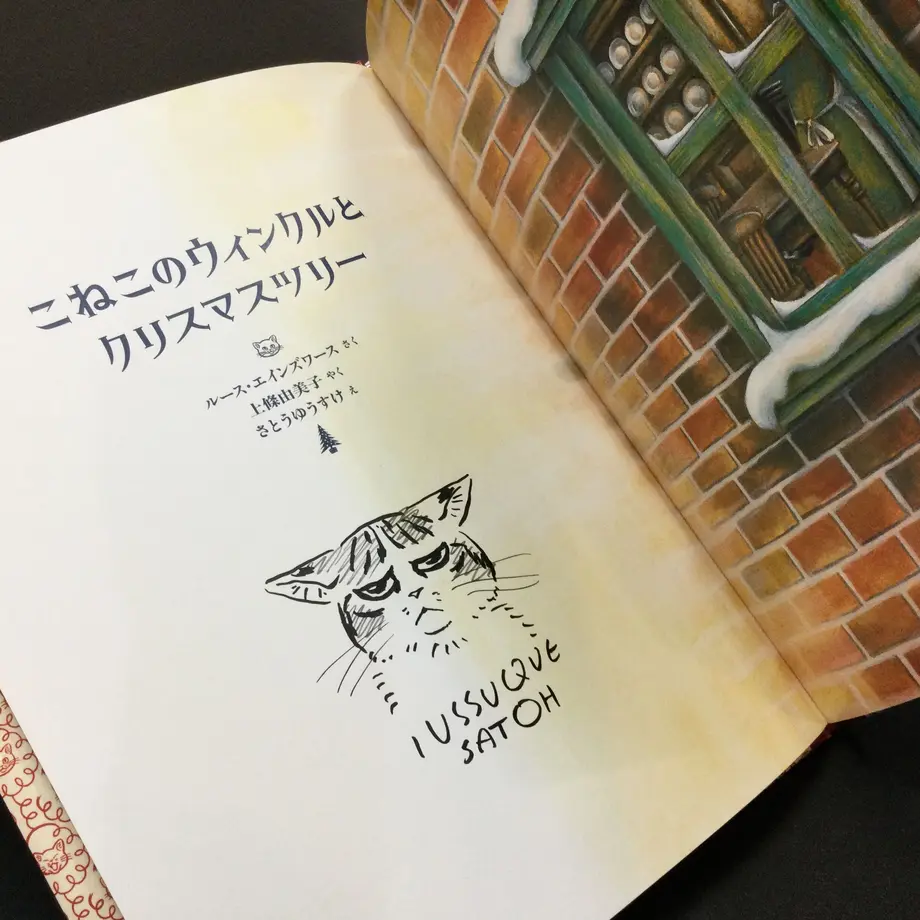 こねこのウィンクルと
クリスマスツリー
ルース・エインズワース さく
上條由美子 やく
さとうゆうすけ え
IUSSUQUE
SATOH